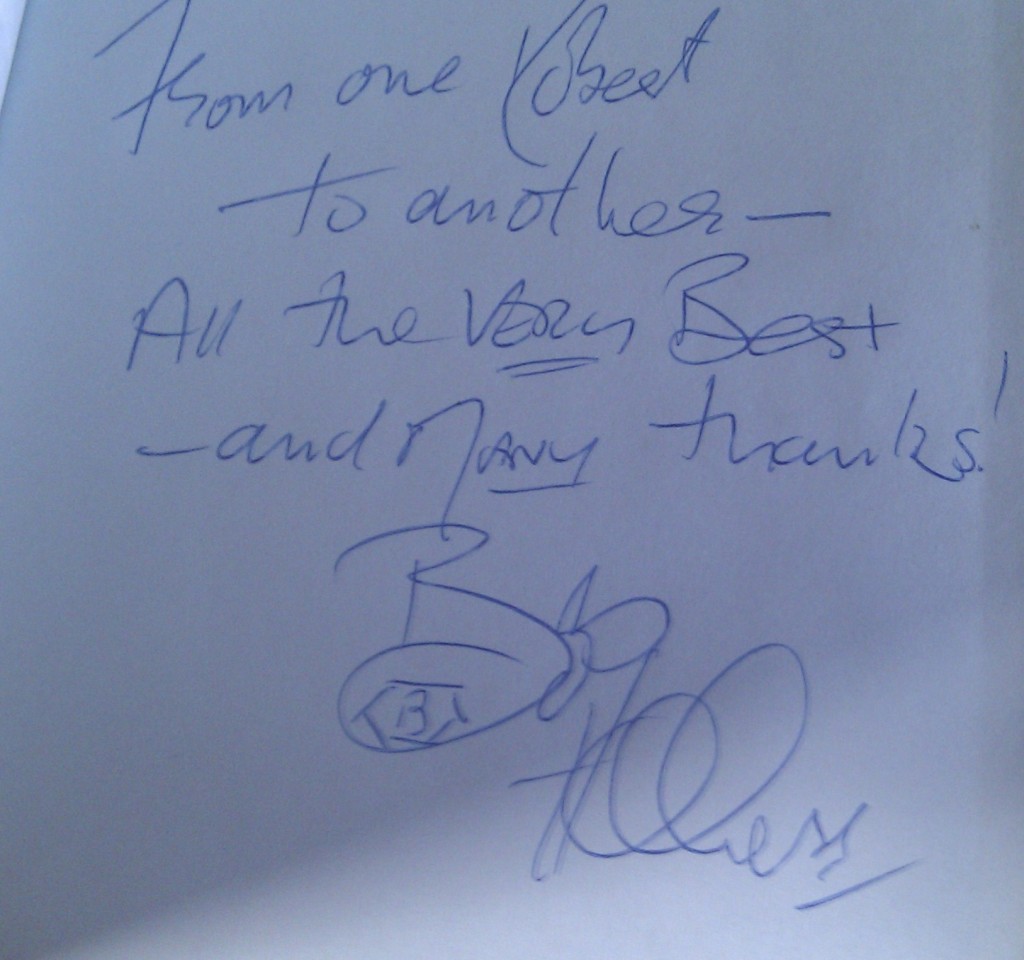 From one Robert
to another —
All the Very Best
— and Many thanks!
B